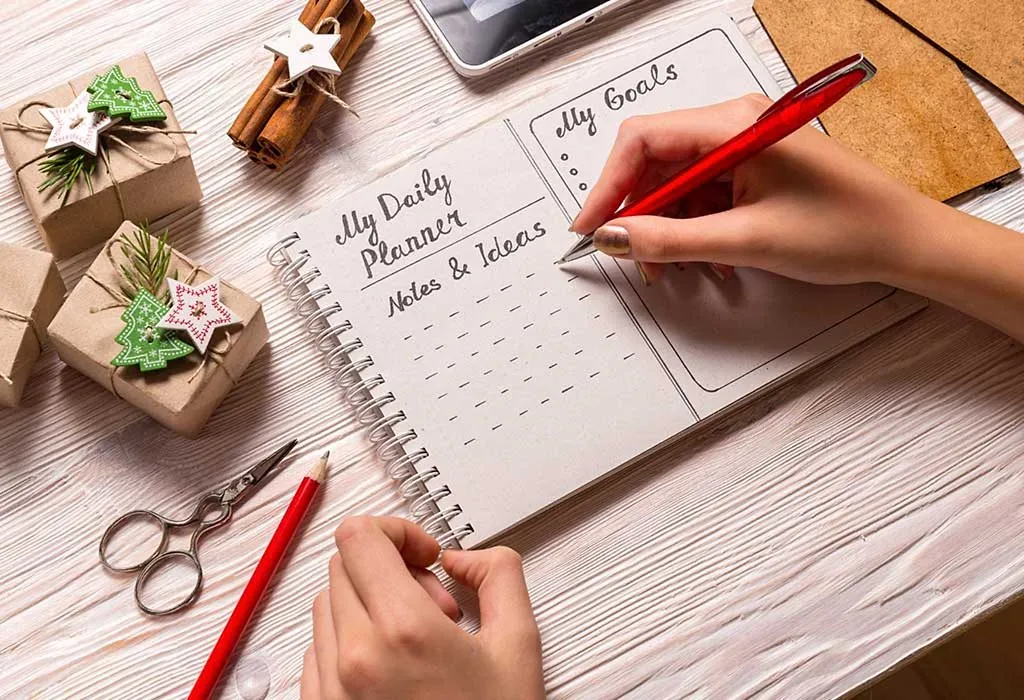 My Daily
Planner
Notes & Ideas
My Goals